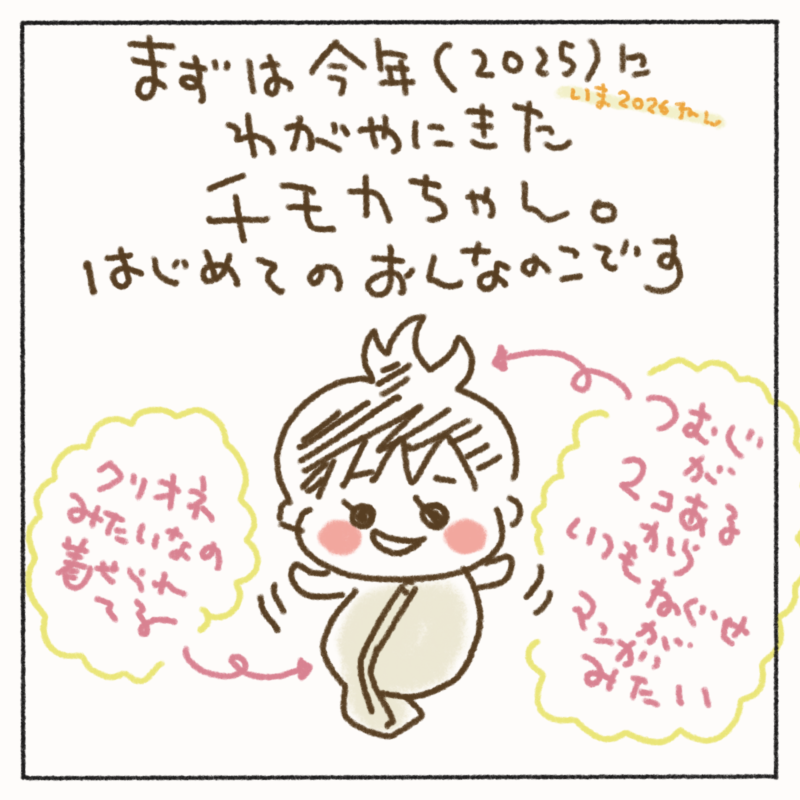 まずは今年(2025)に
いま2026ねん
わがやにきた
チモカちゃん。
はじめてのおんなのこです
つむじ
が
マコある
から
いつも
ねぐせ
が
マニがい
みたい
クリオネ
みたいなの
着せられ
てるー